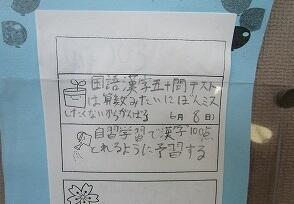 国語漢字五十問テスト
は算数みたいにぼんミス
したくないからがんばる 6月8日)
自習学習で漢字100点
とれるように予習する